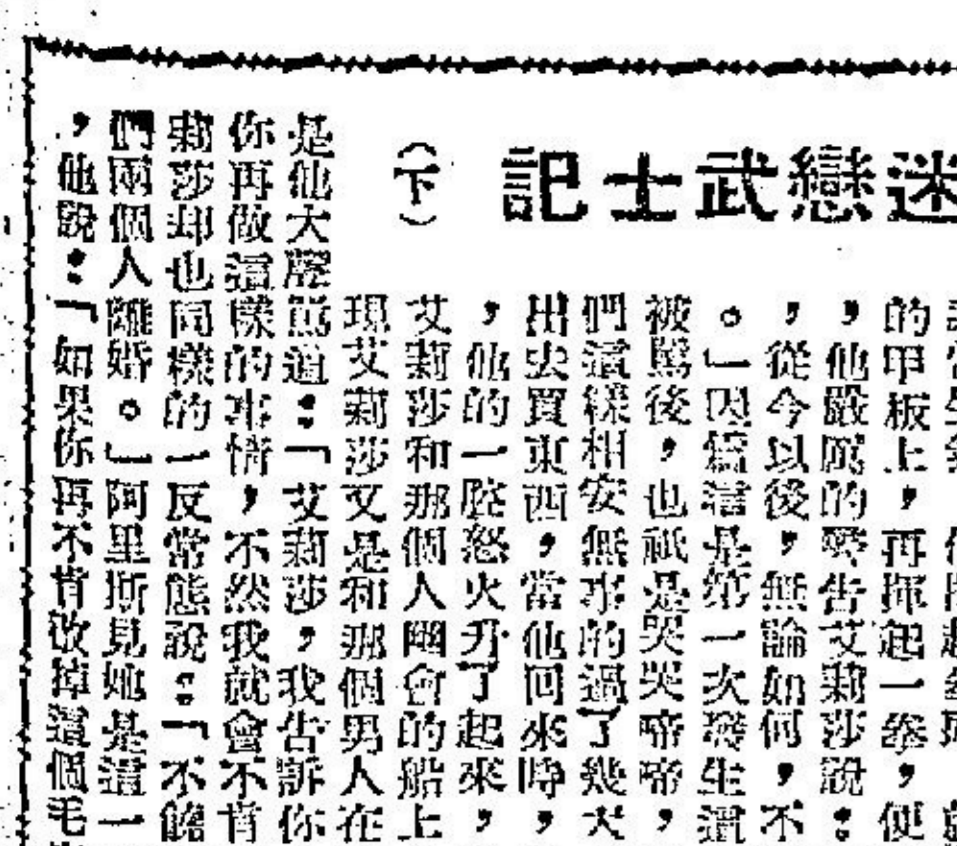 迷戀武士記
（下）
的甲板上，再揮起一拳，便
，他嚴厲的警告艾莉莎說：
，從今以後，無論如何，不
。」因爲這是第一次發生這
被罵後，也祇是哭哭啼啼，
們這樣相安無事的過了幾天
出去買東西，當他回來時，
，他的一腔怒火升了起來，
艾莉莎和那個人幽會的船上
現艾莉莎又是和那個男人在
是他大聲罵道：「艾莉莎，我告訴你
你再做這樣的事情，不然我就會不肯
莉莎却也同樣的一反常態說：「不饒
們兩個人離婚。」阿里斯見她是這一
，他說：「如果你再不肯改掉這個毛